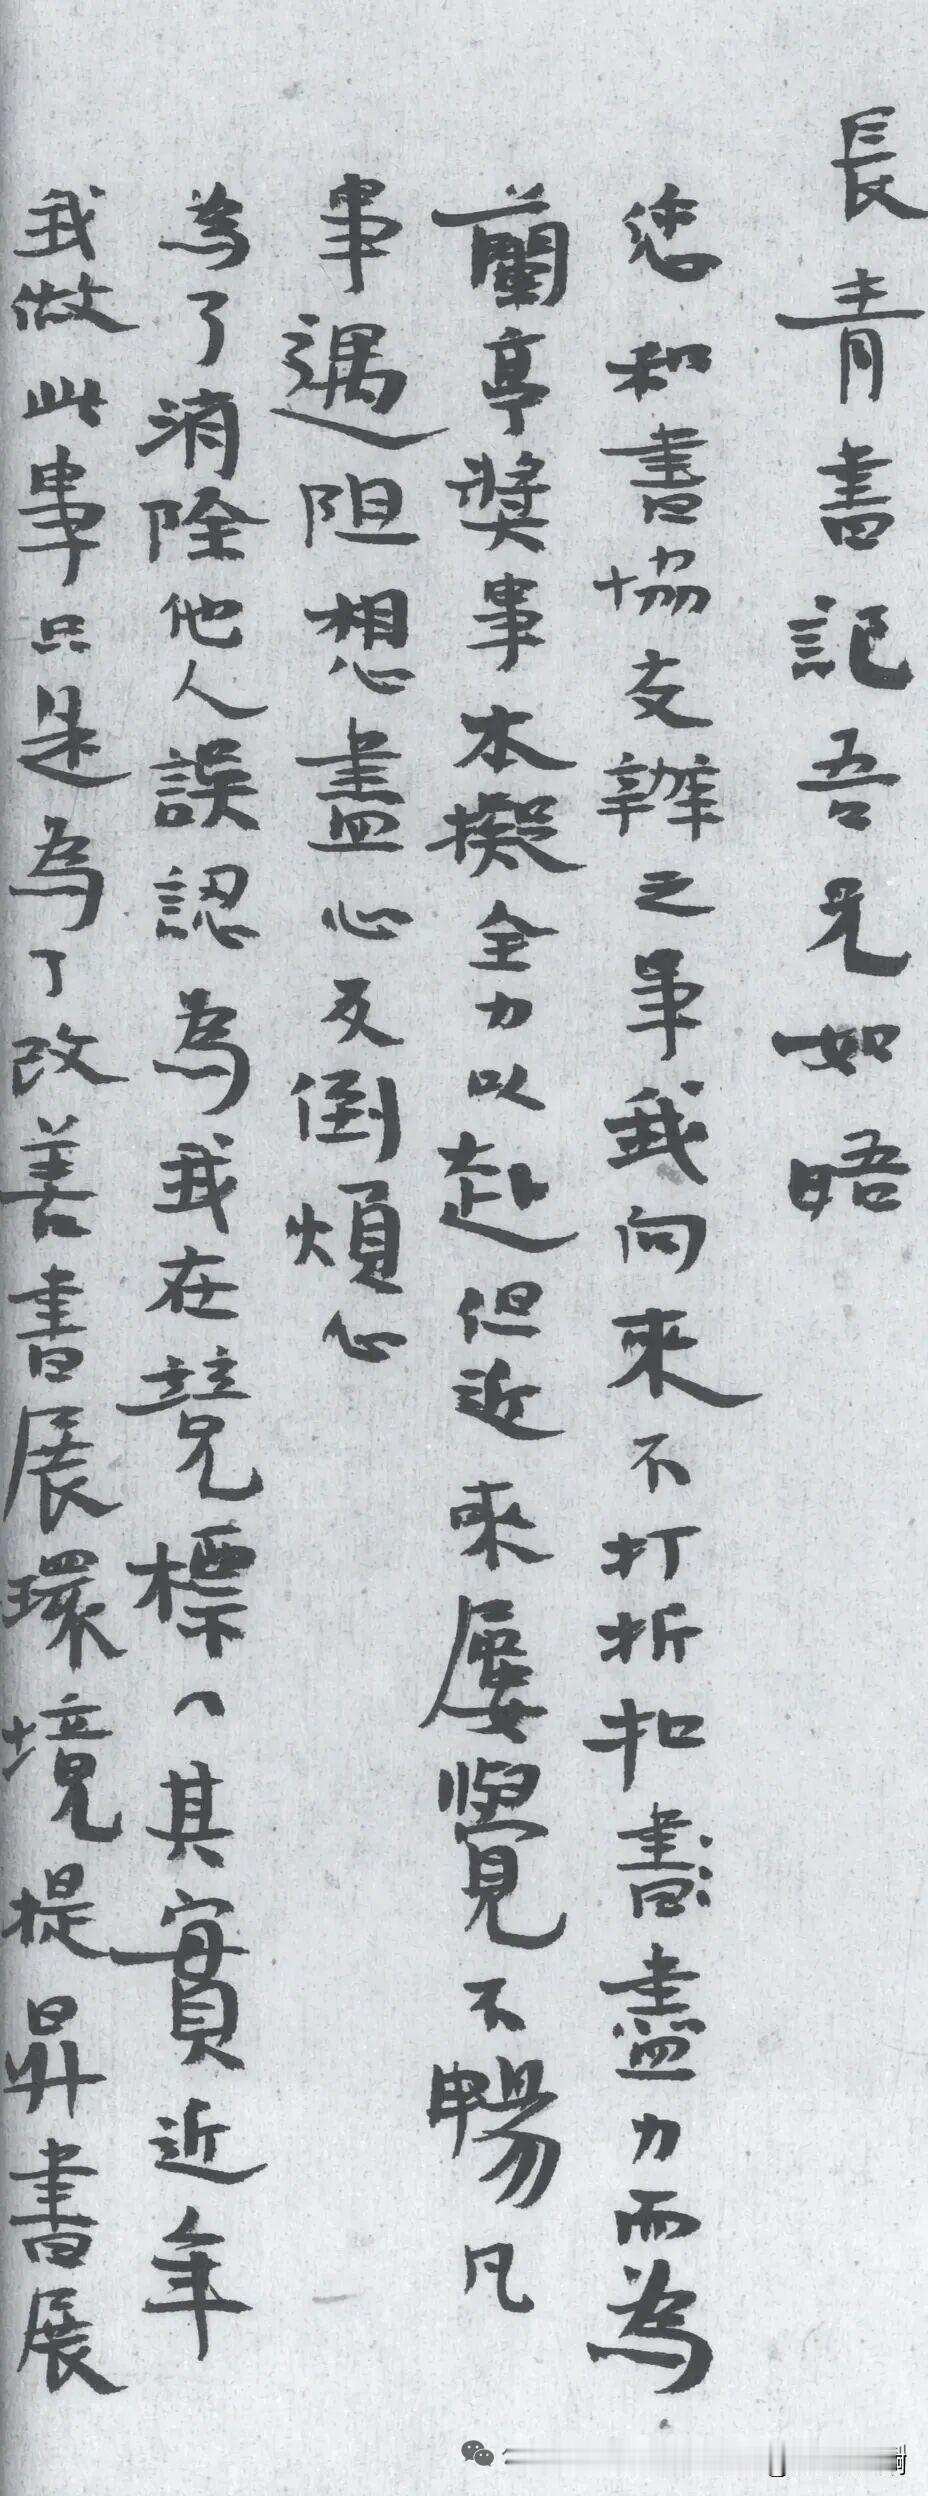 長青書記吾兄如晤
您和書協交辦之事我向來不打折扣書盡力而為
蘭亭奬事本擬全力以赴但近來屢覺不暢凡
事遇阻想盡心反倒煩心
為了消除他人誤認為我在競標其實近年
我做此事只是為了改善書展環境提昇書展